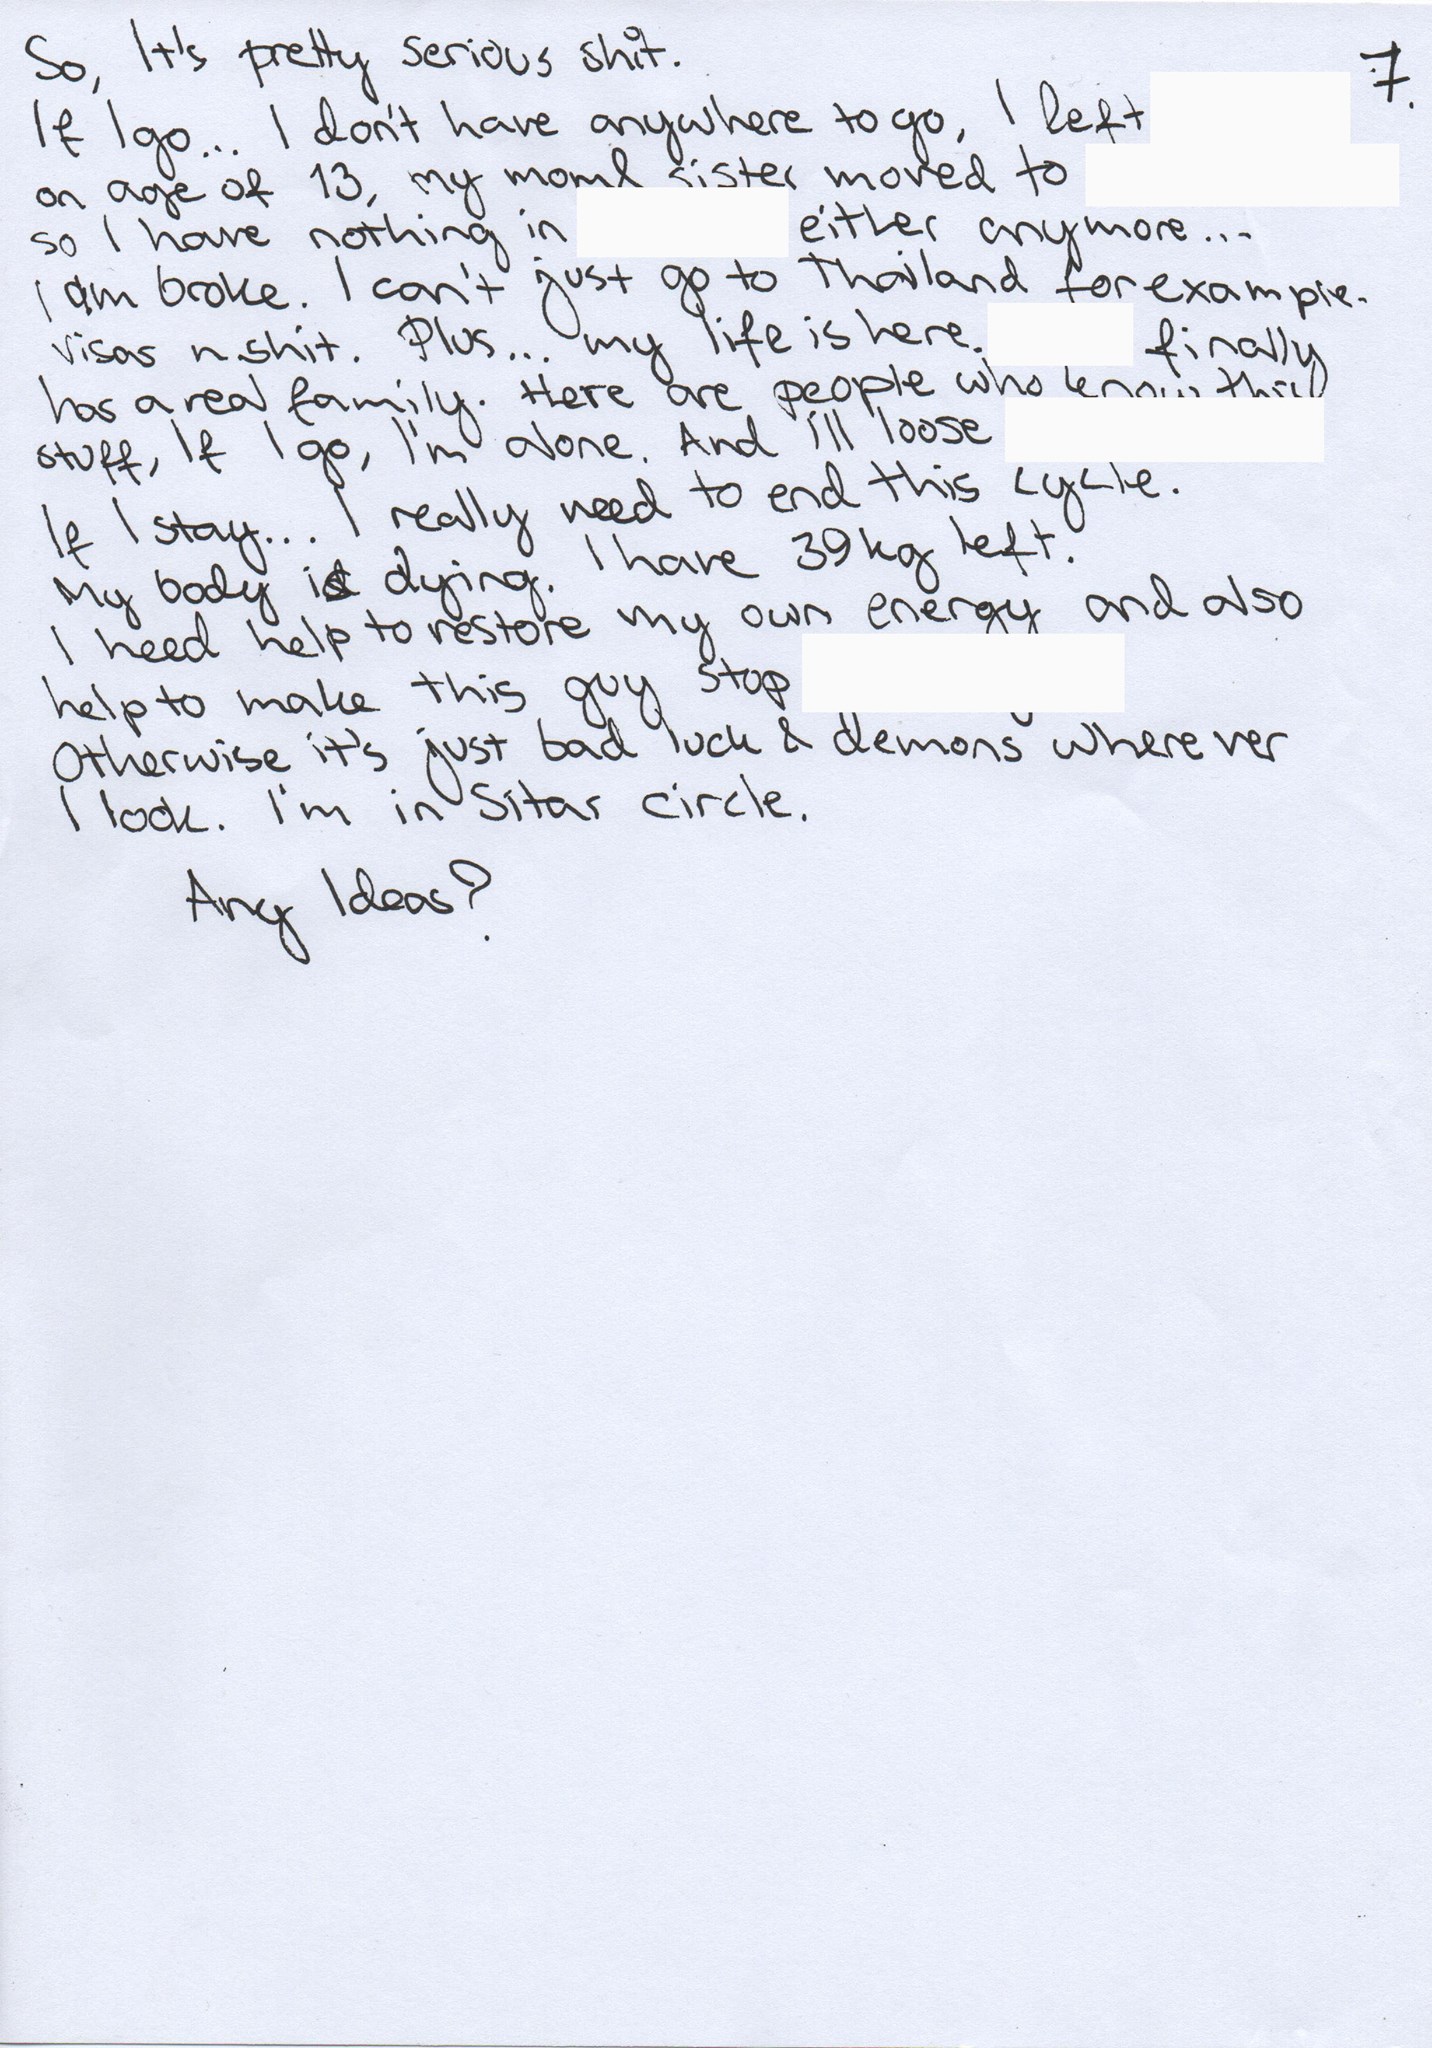 7.
So, It's pretty serious shit.
If I go... I don't have anywhere to go, I left
on age of 13, my mom& sister moved to
so I have nothing in either anymore...
I am broke. I can't just go to Thailand for example.
visas n.shit. Plus... my life is here. finally
has a real family. Here are people who know this
stuff, If I go, I'm alone. And i'll loose
If I stay... I really need to end this cycle.
My body is dying. I have 39kg left.
I need help to restore my own energy and also
help to make this guy stop
Otherwise it's just bad luck & demons wherever
I look. I'm in Sitar circle.
Any Ideas?